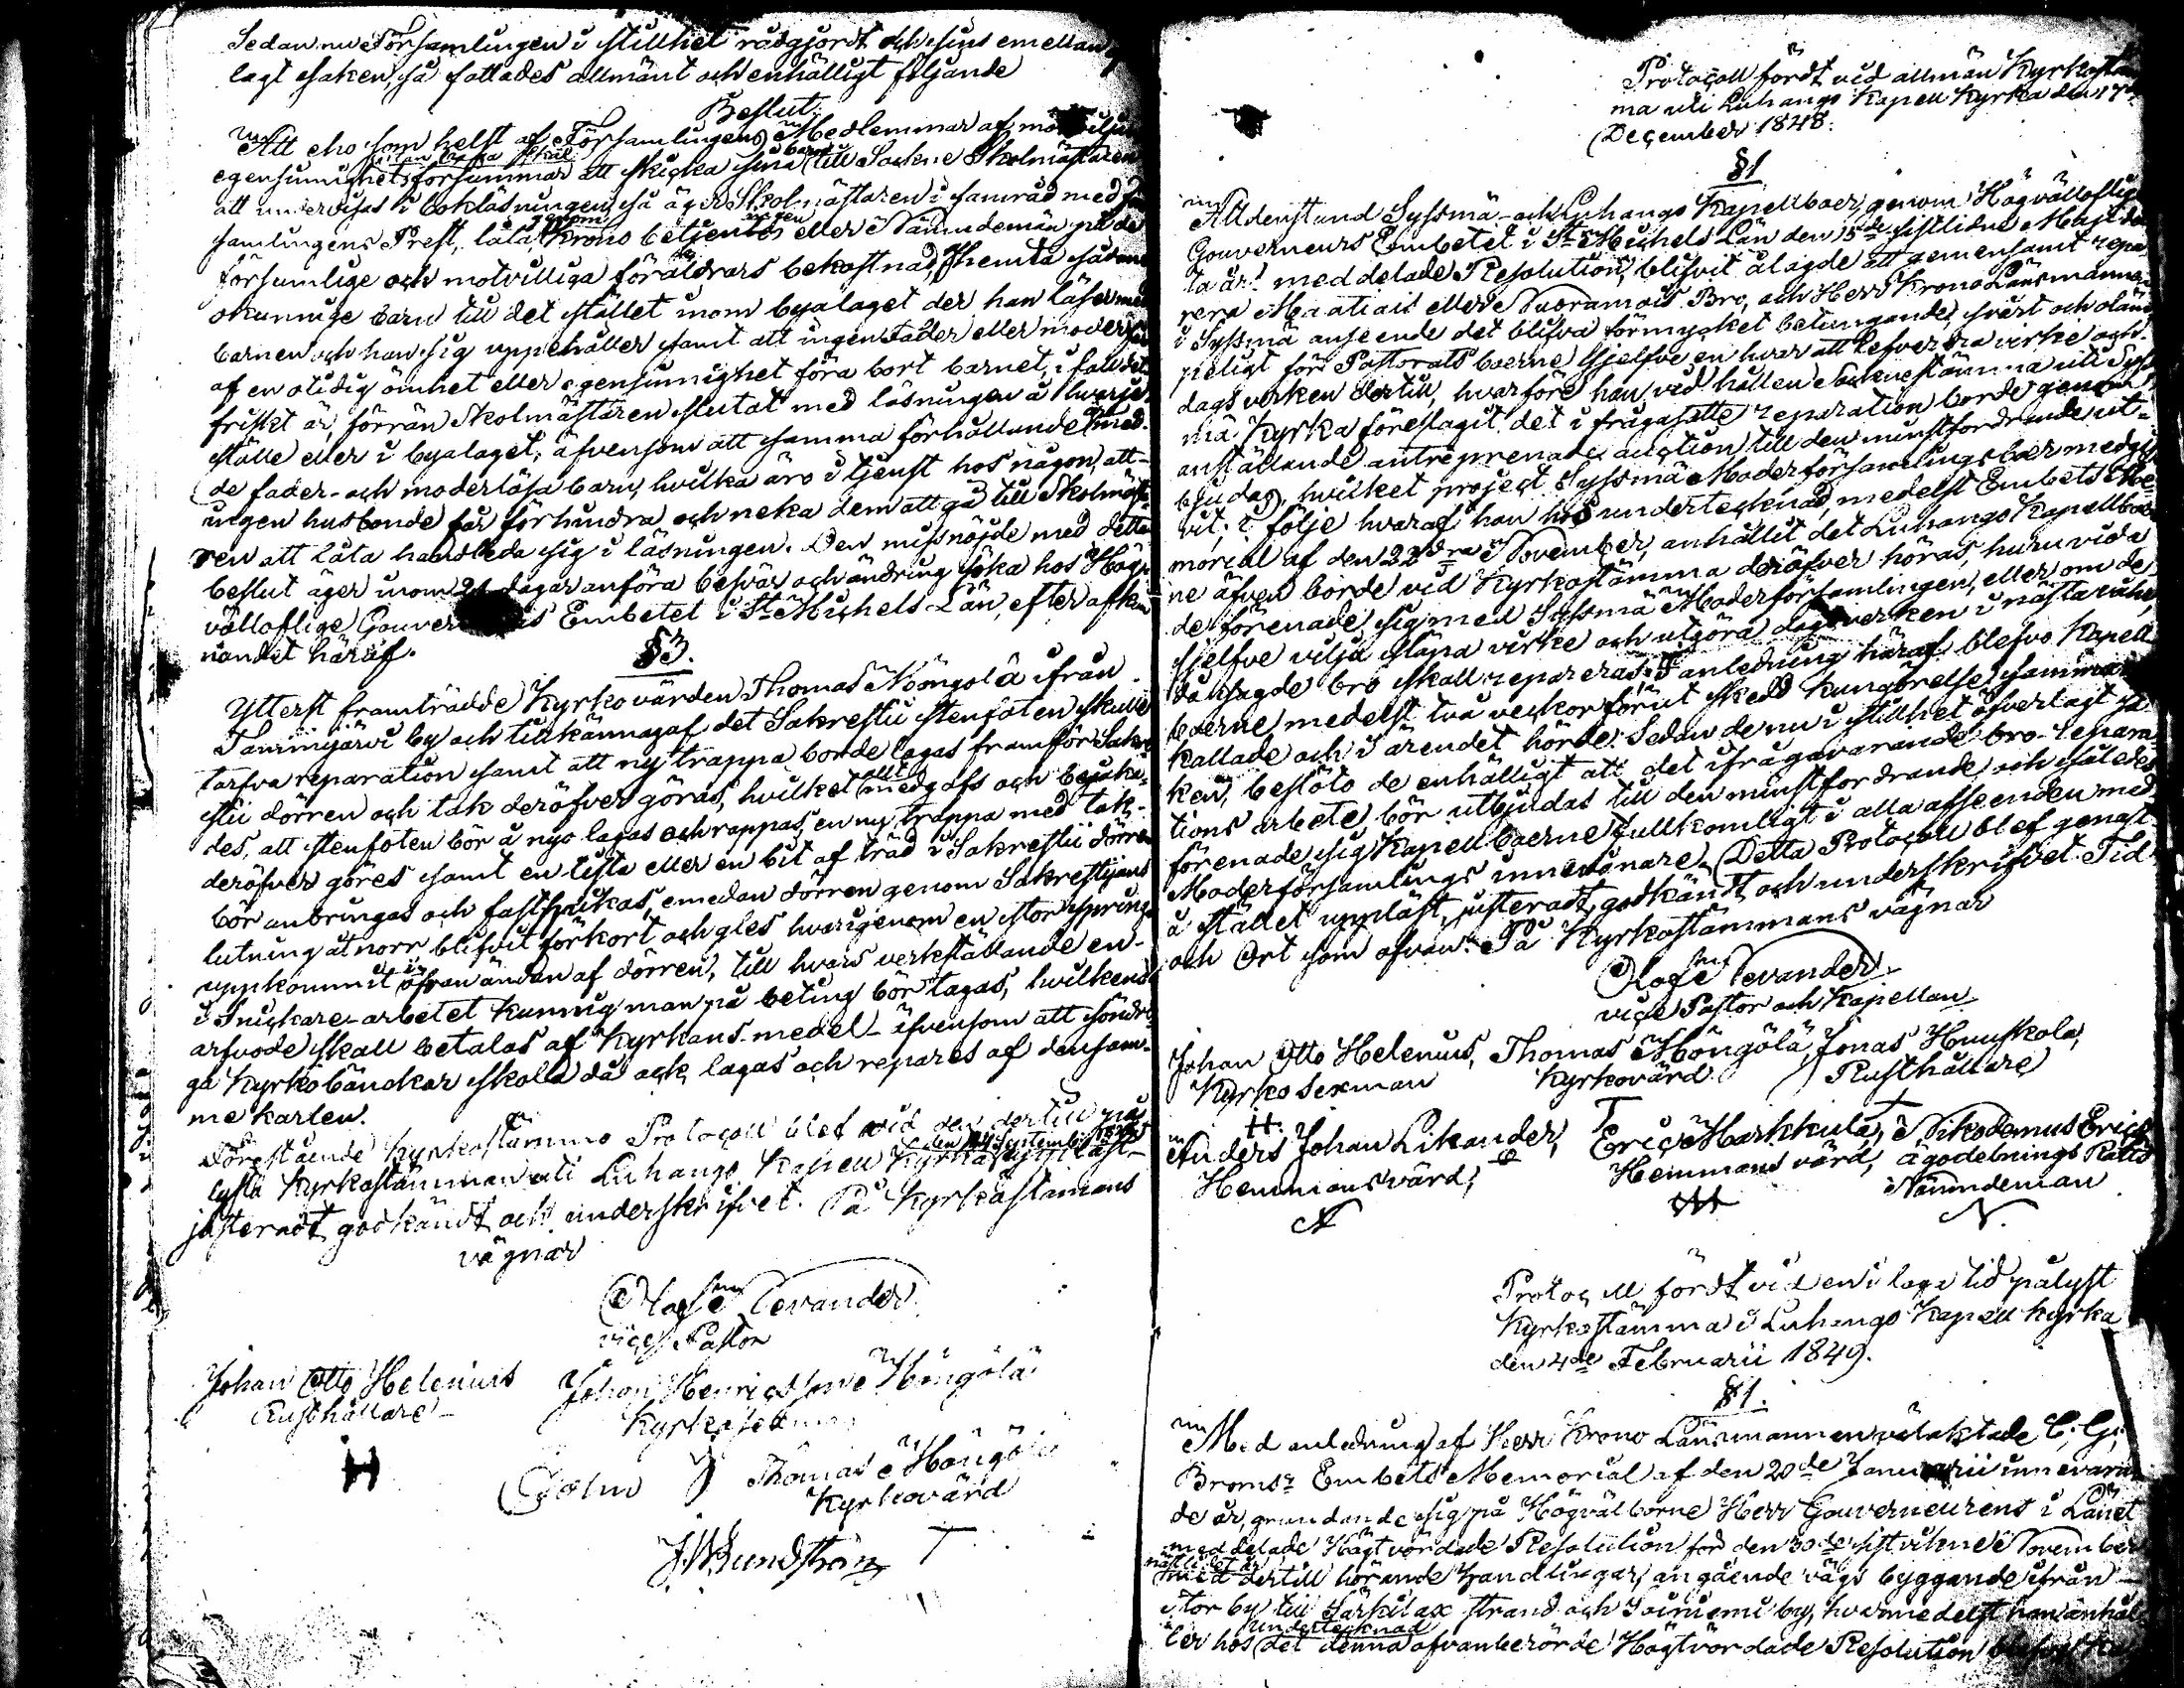 Sedan nu Församlingen i stillhet rådgjordt och sins emellan
lagt saken, så fattades allmänt och enhälligt följande
Beslut:
Att eho som helst af Församlingens Medlemmar af
utan laga skäl barn
egensinnighet försummar att skicka sina till Sockne Skolmästaren
att undervisas i bokläsningen, så äger Skolmästaren i samråd med
genom ingen
samlingens Prest, låta Krono betjenten eller Nämndemän på de
försumlige och motvilliga föräldrars bekostnad, hemta sådane
okunnige barn till det stället inom byalaget der han läser med
barnen och han sig uppehåller samt att ingen fader eller moder
af en otidig ömhet eller egensinnighet föra bort barnet, i fall det
friskt är, förrän Skolmästaren slutat med läsningen å hvarje
ställe eller i byalaget; äfvensom att samma förhållande med
de fader- och moderlösa barn, hvilka äro i tjenst hos någon, att
ingen husbonde får förhindra och neka dem att gå till Skolmästa-
ren att låta handleda sig i läsningen. Den missnöjde med detta
beslut äger inom 21 dagar anföra besvär och ändring söka hos Hög-
välloflige Gouverneurs Embetet i St Michels Län, efter afkun-
nandet häraf.
§3.
Ytterst framträdde Kyrkovärden Thomas Nöngölä ifrån
Tammijärvi by och tillkännagaf det Sakrestii stenfoten skulle
tarfva reparation samt att ny trappa borde lagas framför Sakre-
stii dörren och tak deröfver göras, hvilket allt medgafs och besluta-
des, att stenfoten bör å nyo lagas och rappas, en ny trappa med tak
deröfver göres samt en lista eller en bit af träd i Sakrestii dörren
bör anbringas och fastspikas, emedan dörren genom Sakrestijans
lutning åt norr blifvit förkort och gles hvarigenom en stor springa
uppkommit i öfran ändan af dörren, till hvars verkställande en
i Snickare-arbetet kunnig man på beting bör tagas, hvilkens
arfvode skall betalas af Kyrkans medel äfvensom att söndri-
ga Kyrko bänckar skola då ock lagas och repareras af densam-
me karlen.
Förestående Kyrkostämmo Protocoll blef vid den dertill på-
lysta Kyrkostämman uti Luhango Kapell Kyrka uppläst
justeradt, godkändt och underskrifvet. På Kyrkostämans
vägnar
Olof Levander
vice Pastor
Johan Otto Helenius Johan Henricsson Höngölä
Rusthållare Kyrkosexman
H
Thomas Höngölä
Kyrkovärd
T
J. W. Sundström
Protocoll fördt vid allmän Kyrkostäm-
ma uti Luhango Kapell Kyrka den 17de
December 1848.
§1
Alldenstund Syssmä- och Luhango Kapellboer, genom Högvälloflige
Gouverneurs Embetet i St Michels Län den 15de sistlidne Maji det-
ta år meddelade Resolution, blifvit ålagde att gemensamt repa-
rera Maatiais eller Nuoramois Bro, och Herr Krono Länsmannen
i Syssmä anseende det blifva förmycket betungande, svårt och oläm-
peligt för Pastorats boerne sjelfve en hvar att lefverera virke och
dags verken dertill, hvarföre han vid hållen Sockenstämma uti Syss-
mä Kyrka föreslagit det i frågasatte reparation borde genom
anställande antreprenade auction till den minstfordrande ut-
bjudas, hvilket project Syssmä Moderförsamlings boer medgif-
vit; i följe hvaraf han hos undertecknad, medelst Embets Me-
morial af den 22dra November, anhållit det Luhango Kapellboer-
ne äfven borde vid Kyrkostämma deröfver höras, huruvida
de förenade sig med Syssmä Moderförsamlingen, eller om de
sjelfve vilja släpa virke och utgöra dagsverken i nästa
då sagde bro skall repareras. I anledning häraf blefvo Kapell
boerne medelst två veckor förut skedd kungörelse samman
kallade och i ärendet hörde: Sedan de nu i stillhet öfverlagt sa-
ken, beslöto de enhälligt att det ifrågavarande bro repara-
tions arbete bör utbjudas till den minstfordrande och således
förenade sig Kapellboerne fullkomligt i alla afseenden med
Moderförsamlings innevånare. Detta Protocoll blef genast
å stället uppläst, justeradt, godkändt och underskrifvet. Tid
och Ort som ofvan. På Kyrkostämmans vägnar
Olof Levander
vice Pastor och Kapellan
Johan Otto Helenius, Thomas Höngölä, Jonas Honskola,
Kyrko sexman Kyrkovärd Rusthållare
H. T
Anders Johan Likander, Eric Markkula, Nikodemus Erics
Hemmansvärd, Hemmans värd, ägodelnings Rätts
Nämndeman
N.
Protocoll fördt vid en i laga tid pålyst
Kyrkostämma i Luhango Kapell Kyrka
den 4de Februarii 1849.
§1.
Med anledning af Herr Krono Länsmannen välaktade C. G.
Broms Embets Memorial af den 20de Januarii innevaran-
de år, grundande sig på Högvälborne Herr Gouverneurens i Länet
meddelade Högtvördade Resolution för den 30de sistvikne November
med dertill hörande handlingar, angående vägs byggande ifrån
Storby till Särkilax strand och by, hvarmedelst han anhål-
undertecknad
ler hos det denna ofvanberörde Högtvördade Resolution